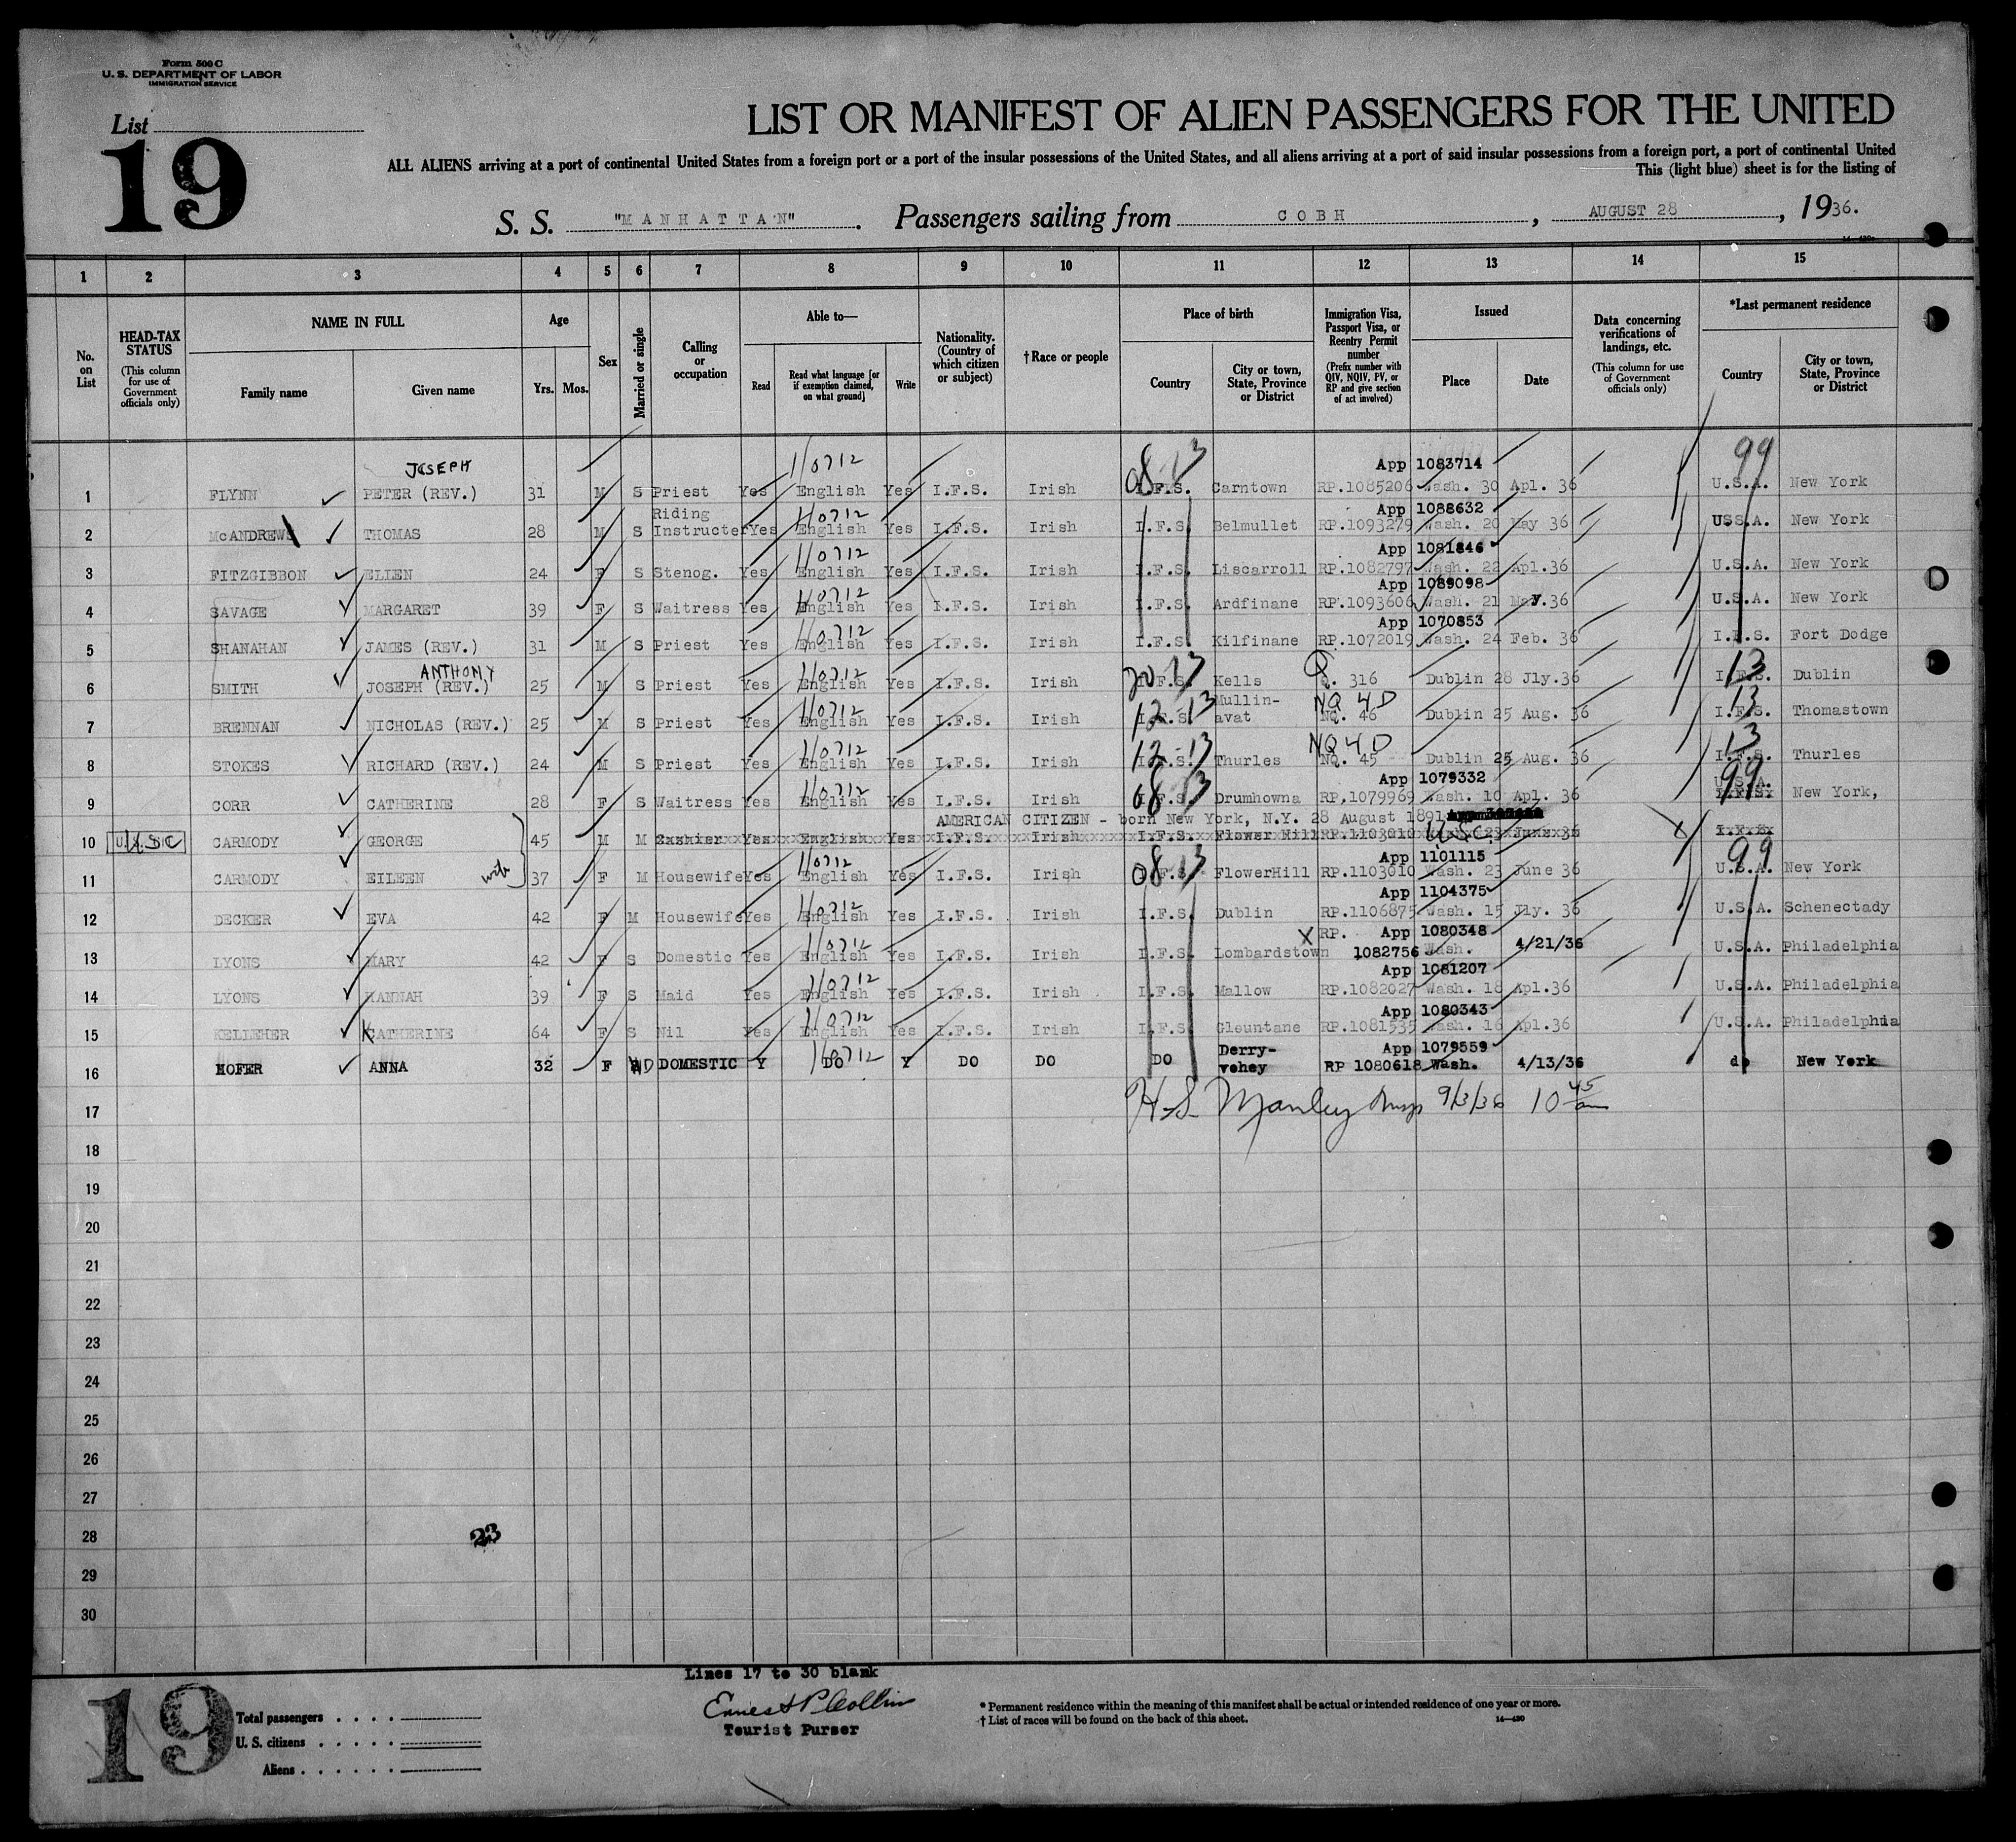 Form 500 C
U. S. DEPARTMENT OF LABOR
IMMIGRATION SERVICE
List
19
LIST OR MANIFEST OF ALIEN PASSENGERS FOR THE UNITED
ALL ALIENS arriving at a port of continental United States from a foreign port or a port of the insular possessions of the United States, and all aliens arriving at a port of said insular possessions from a foreign port, a port of continental United
This (light blue) sheet is for the listing of
S. S. "MANHATTAN". Passengers sailing from COBH, AUGUST 28, 1936.
1 2 3 4 5 6 7 8 9 10 11 12 13 14 15
No. on List
HEAD-TAX STATUS (This column for use of Government officials only)
NAME IN FULL Family name Given name
Age Yrs. Mos.
Sex
Married or single
Calling or occupation
Able to— Read Read what language [or if exemption claimed, on what ground] Write
Nationality. (Country of which citizen or subject)
†Race or people
Place of birth Country City or town, State, Province or District
Immigration Visa, Passport Visa, or Reentry Permit number (Prefix number with QIV, NQIV, PV, or RP and give section of act involved)
Issued Place Date
Data concerning verifications of landings, etc. (This column for use of Government officials only)
*Last permanent residence Country City or town, State, Province or District
JOSEPH 1/0712 08-13 App 1083714 99
1 FLYNN PETER (REV.) 31 M S Priest Yes English Yes I.F.S. Irish I.F.S. Carntown RP.1085206 Wash. 30 Apl. 36 U.S.A. New York
Riding 1/0712 App 1088632
2 McANDREWS THOMAS 28 M S Instructer Yes English Yes I.F.S. Irish I.F.S. Belmullet RP.1093279 Wash. 20 May 36 USS.A. New York
1/0712 App 1081846
3 FITZGIBBON ELLEN 24 F S Stenog. Yes English Yes I.F.S. Irish I.F.S. Liscarroll RP.1082797 Wash. 22 Apl.36 U.S.A. New York
1/0712 App 1089098
4 SAVAGE MARGARET 39 F S Waitress Yes English Yes I.F.S. Irish I.F.S. Ardfinane RP.1093606 Wash. 21 May.36 U.S.A. New York
1/0712 App 1070853
5 SHANAHAN JAMES (REV.) 31 M S Priest Yes English Yes I.F.S. Irish I.F.S. Kilfinane RP.1072019 Wash. 24 Feb. 36 I.F.S. Fort Dodge
ANTHONY 1/0712 20-13 Q 13
6 SMITH JOSEPH (REV.) 25 M S Priest Yes English Yes I.F.S. Irish I.F.S. Kells Q. 316 Dublin 28 Jly.36 I.F.S. Dublin
1/0712 12-13 Mullin- NQ 4 D 13
7 BRENNAN NICHOLAS (REV.) 25 M S Priest Yes English Yes I.F.S. Irish I.F.S. avat NQ. 46 Dublin 25 Aug. 36 I.F.S. Thomastown
1/0712 12-13 NQ 4 D 13
8 STOKES RICHARD (REV.) 24 M S Priest Yes English Yes I.F.S. Irish I.F.S. Thurles NQ. 45 Dublin 25 Aug. 36 I.F.S. Thurles
1/0712 08 13 App 1079332 U.S.A. 99
9 CORR CATHERINE 28 F S Waitress Yes English Yes I.F.S. Irish I.F.S. Drumhowna RP.1079969 Wash. 10 Apl. 36 New York,
AMERICAN CITIZEN - born New York, N.Y. 28 August 1891
10 U.S.C CARMODY GEORGE 45 M M Cashier Yes English Yes I.F.S. Irish I.F.S. Flower Hill RP.1103010 USC 23 June 36 I.F.S.
1/0712 08-13 App 1101115 99
11 CARMODY EILEEN wife 37 F M Housewife Yes English Yes I.F.S. Irish I.F.S. FlowerHill RP.1103010 Wash. 23 June 36 U.S.A. New York
1/0712 App 1104375
12 DECKER EVA 42 F M Housewife Yes English Yes I.F.S. Irish I.F.S. Dublin RP.1106875 Wash. 15 Jly. 36 U.S.A. Schenectady
1/0712 X RP. App 1080348
13 LYONS MARY 42 F S Domestic Yes English Yes I.F.S. Irish I.F.S. Lombardstown 1082756 Wash. 4/21/36 U.S.A. Philadelphia
1/0712 App 1081207
14 LYONS HANNAH 39 F S Maid Yes English Yes I.F.S. Irish I.F.S. Mallow RP.1082027 Wash. 18 Apl.36 U.S.A. Philadelphia
1/0712 App 1080343
15 KELLEHER KATHERINE 64 F S Nil Yes English Yes I.F.S. Irish I.F.S. Glountane RP.1081535 Wash. 16 Apl.36 U.S.A. Philadelphia
1/0712 Derry- App 1079559
16 HOFER ANNA 32 F WD DOMESTIC Y DO Y DO DO DO vohey RP 1080618 Wash. 4/13/36 do New York
17 H.S. Manley Insp 9/3/36 10 45 am
18
19
20
21
22
23
24
25
26
27
28 23
29
30
Lines 17 to 30 blank
Ernest P Collin
Tourist Purser
19
Total passengers . . . .
U. S. citizens . . . . .
Aliens . . . . . .
* Permanent residence within the meaning of this manifest shall be actual or intended residence of one year or more.
† List of races will be found on the back of this sheet. 14—430